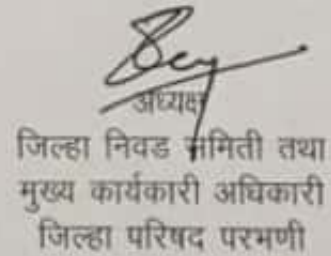 अध्यक्ष
जिल्हा निवड समिती तथा
मुख्य कार्यकारी अधिकारी
जिल्हा परिषद परभणी